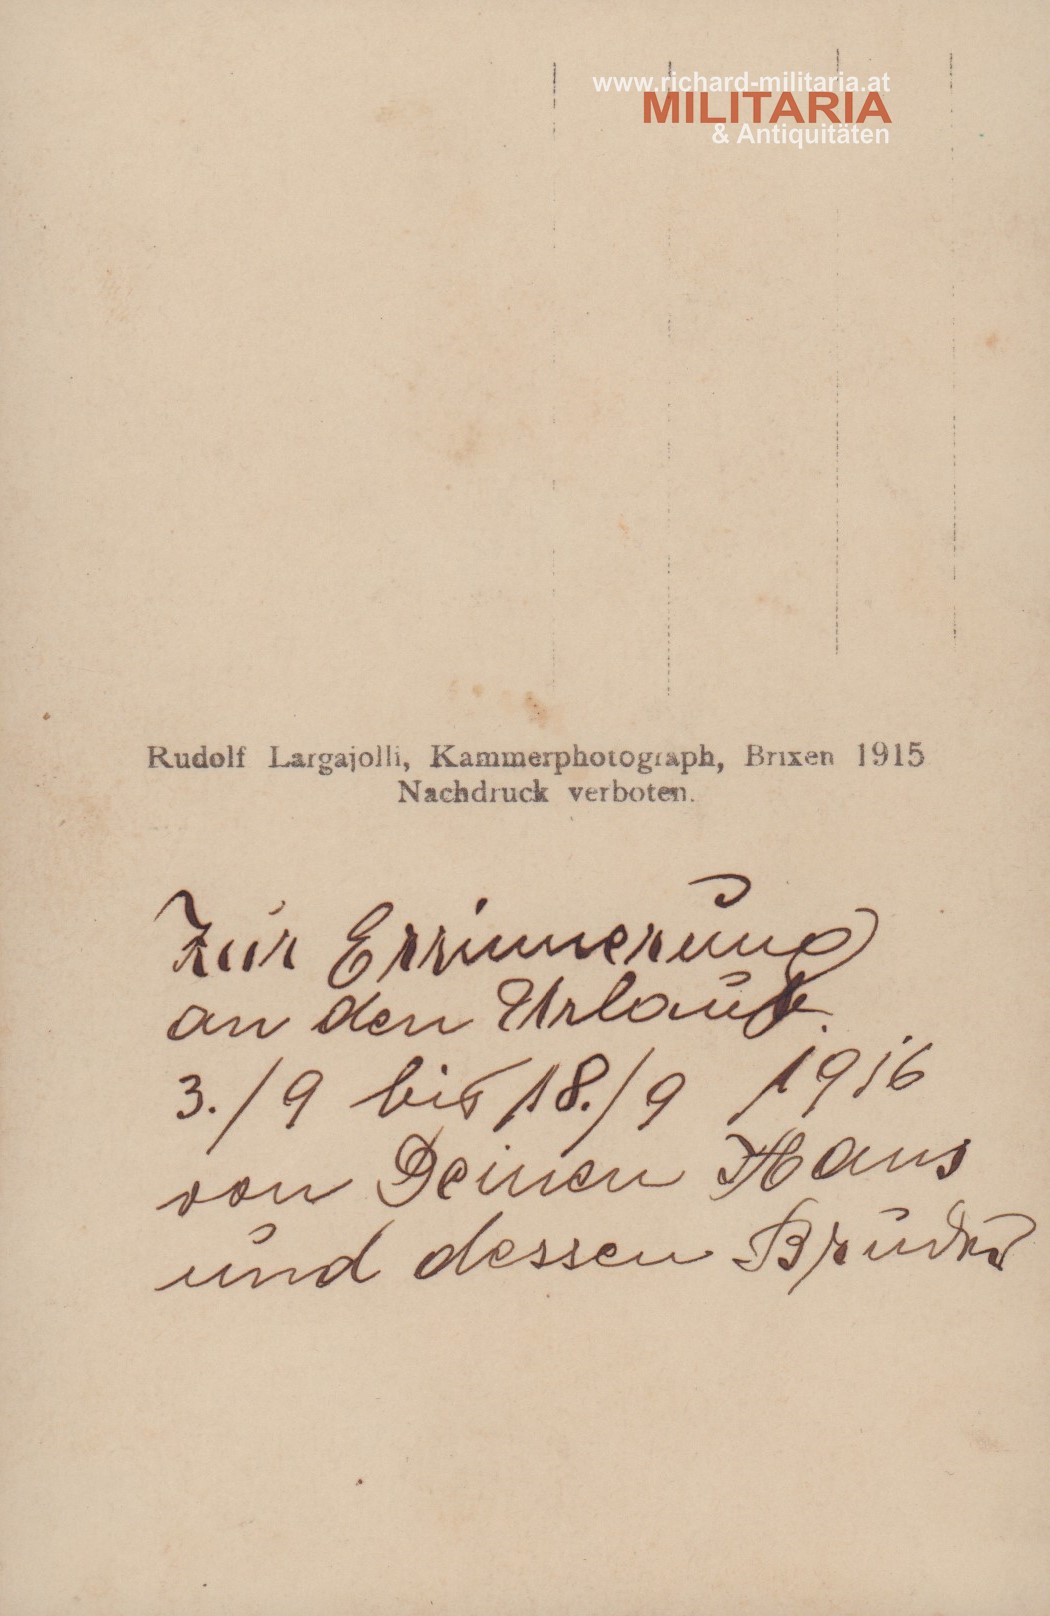 www.richard-militaria.at
MILITARIA
& Antiquitäten
Rudolf Largajolli, Kammerphotograph, Brixen 1915
Nachdruck verboten.
Zur Errinnerung
an den Urlaub.
3./9 bis 18./9 1916
von Deinen Hans
und dessen Bruder